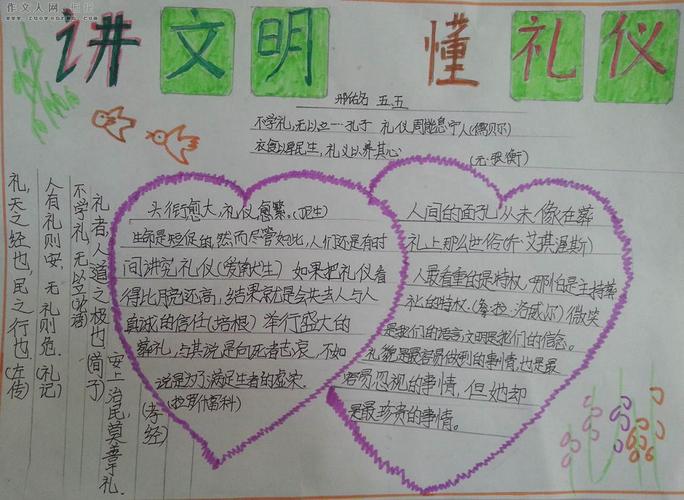 作文人网
www.zuowenren.com
讲文明 懂礼仪
五五
不学礼,无以立---孔子 礼仪周
衣食以厚民生,礼义以养其心
(元·许衡)
礼,天之经也,民之行也.(左传)
人有礼则安,无礼则危.(礼记)
不学礼,无以立(论语)
礼者,人道之极也(荀子)
安上治民,莫善于礼.
(孝经)
头衔愈大,礼仪愈繁。
生命是短促的,然而尽管如此,人们还是有时
间讲究礼仪(爱默生) 如果把礼仪看
得比月亮还高,结果就是会失去人与人
真诚的信任(培根) 举行盛大的
葬礼,与其说是向死者志哀,不如
说是为了满足生者的虚荣.
人间的面孔从未像在葬
礼上那么世俗(乔·艾琪渥斯)
人最看重的是特权,哪怕是主持葬
礼的特权.(洛威尔) 微笑
是我们的语言,文明是我们的信念。
礼貌是最容易做到的事情,也是最
容易忽视的事情,但她却
是最珍贵的事情。